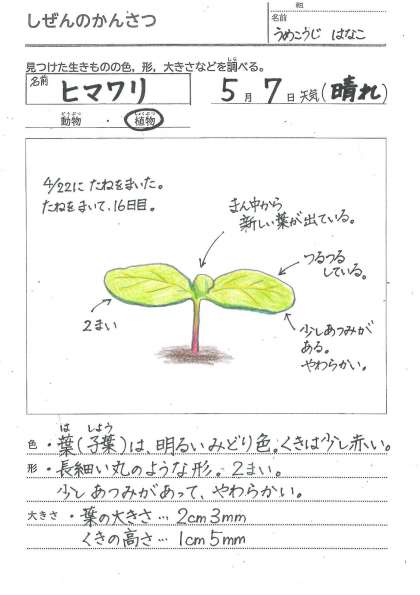 しぜんのかんさつ
組
名前
うめこうじ はなこ
見つけた生きものの色，形，大きさなどを調べる。
名前 ヒマワリ 5月7日 天気(晴れ)
動物 ・ 植物
4/22に たねをまいた。
たねをまいて、16日目。
まん中から
新しい葉が出ている。
つるつる
している。
2まい
少しあつみが
ある。
やわらかい。
色 ・葉(子葉)は、明るいみどり色。くきは少し赤い。
形 ・長細い丸のような形。2まい。
少しあつみがあって、やわらかい。
大きさ ・葉の大きさ… 2cm3mm
くきの高さ… 1cm5mm